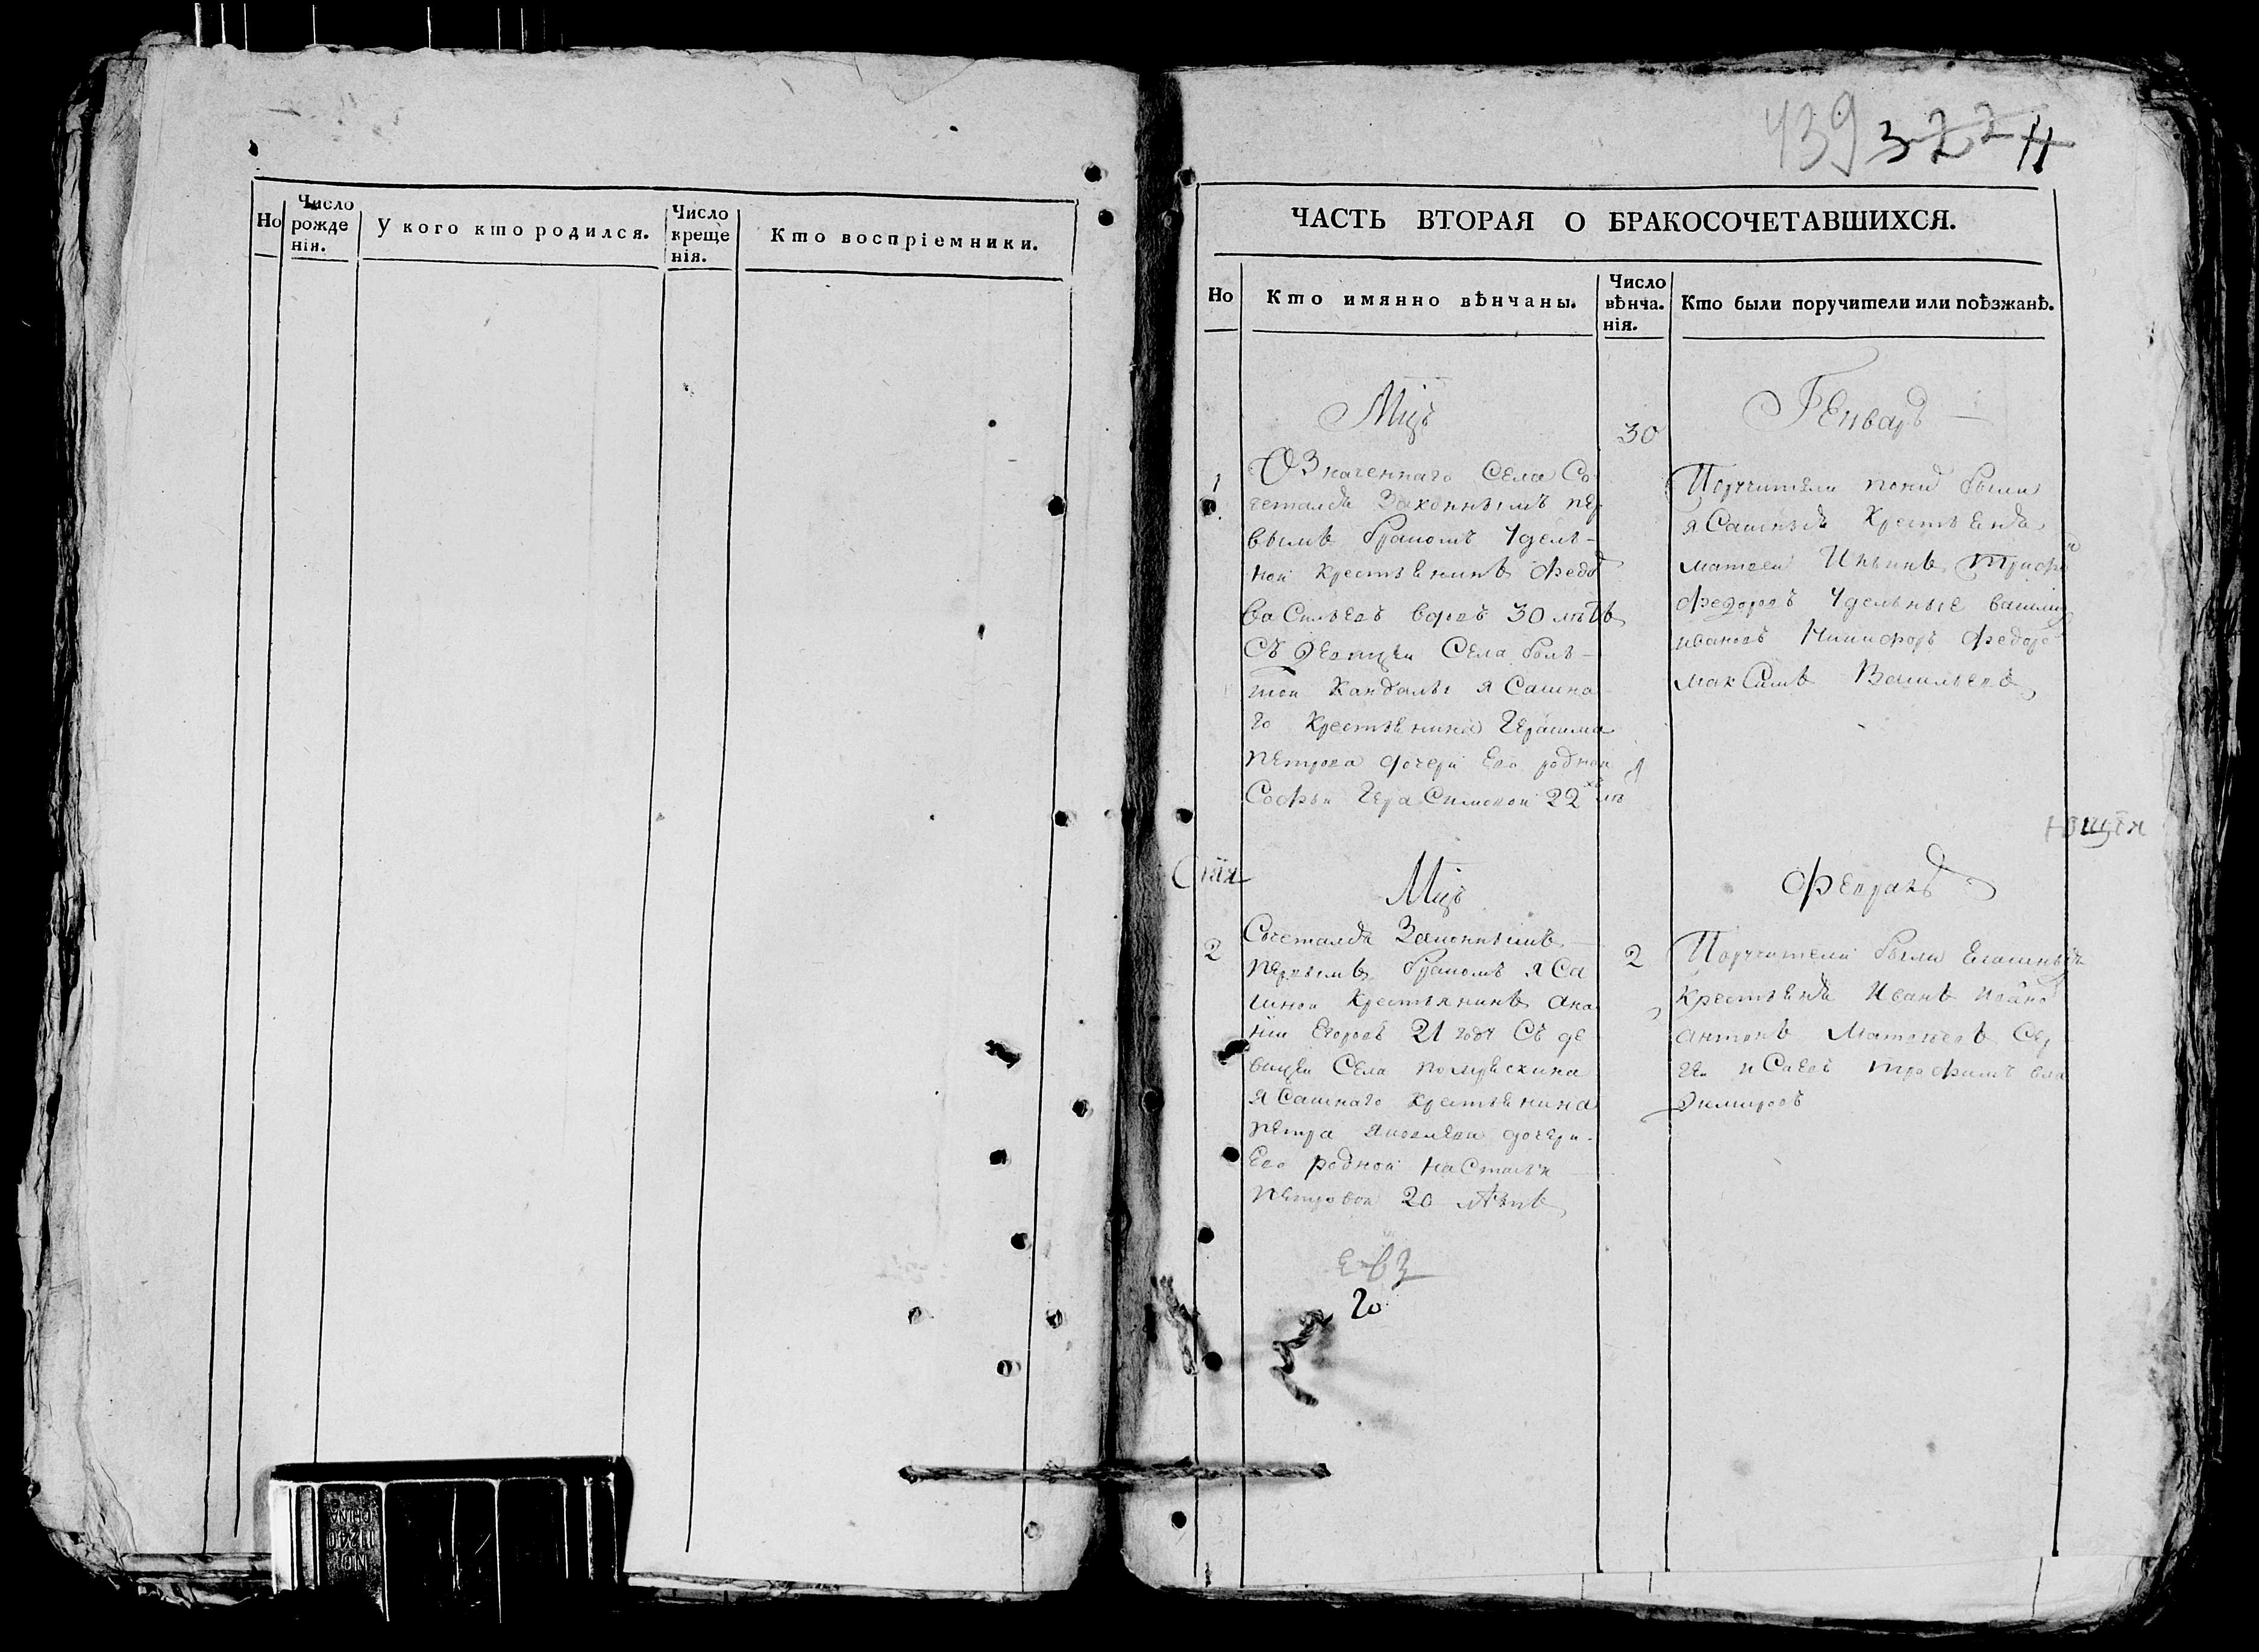 Но
Число рожденія.
У кого кто родился.
Число крещенія.
Кто воспріемники.
439 322 11
ЧАСТЬ ВТОРАЯ О БРАКОСОЧЕТАВШИХСЯ.
Но
Кто имянно вѣнчаны.
Число вѣнча.нія.
Кто были поручители или поѣзжанѣ.
Мцъ
30
Генварь
1
Означеннаго Села Со
четался Законнымъ пер
вымъ бракомъ Удель-
ной крестьянинъ Федо
Васильевъ вдовъ 30 лѣтъ
Съ девицеи Села боль-
шой Кандалы ясашна
го крестьянина Герасима
Петрова дочери Ево родной
Софьи Герасимовой 22 лѣ
Поручители были
ясашныя крестьяня
матвеи Ильинъ
Федоровъ Удельные василий
ивановъ Никифоръ Федоро
максимъ Васильевъ
Мцъ
Февраль
2
Сочетался Законнымъ
первымъ бракомъ яса
шной крестьянинъ Ана
ніи Егоровъ 21 году Съ де
вицеи Села
ясашнаго крестьянина
Петра яковлева дочери
Ево родной Настасьи
Петровой 20 лѣтъ
2
Поручители были
крестьяня Иванъ ивано
антонъ Матвеевъ Сер
геи трофимъ вла
димировъ
20
NO.
11240
CHINA